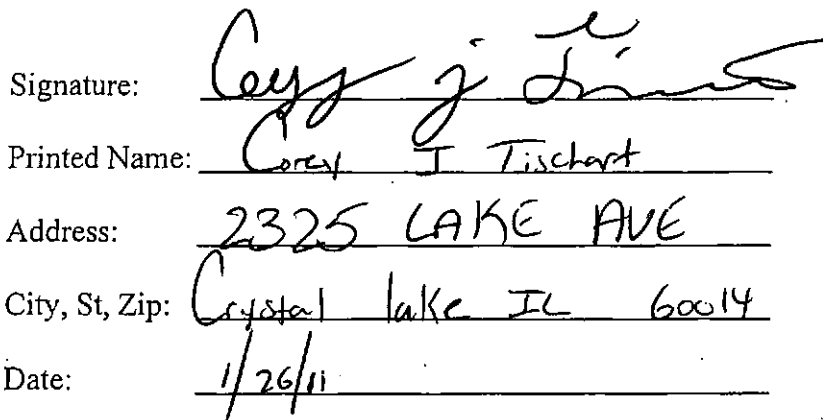 Signature:
Printed Name: Corey J Tischart
Address: 2325 LAKE AVE
City, St, Zip: Crystal lake IL 60014
Date: 1/26/11